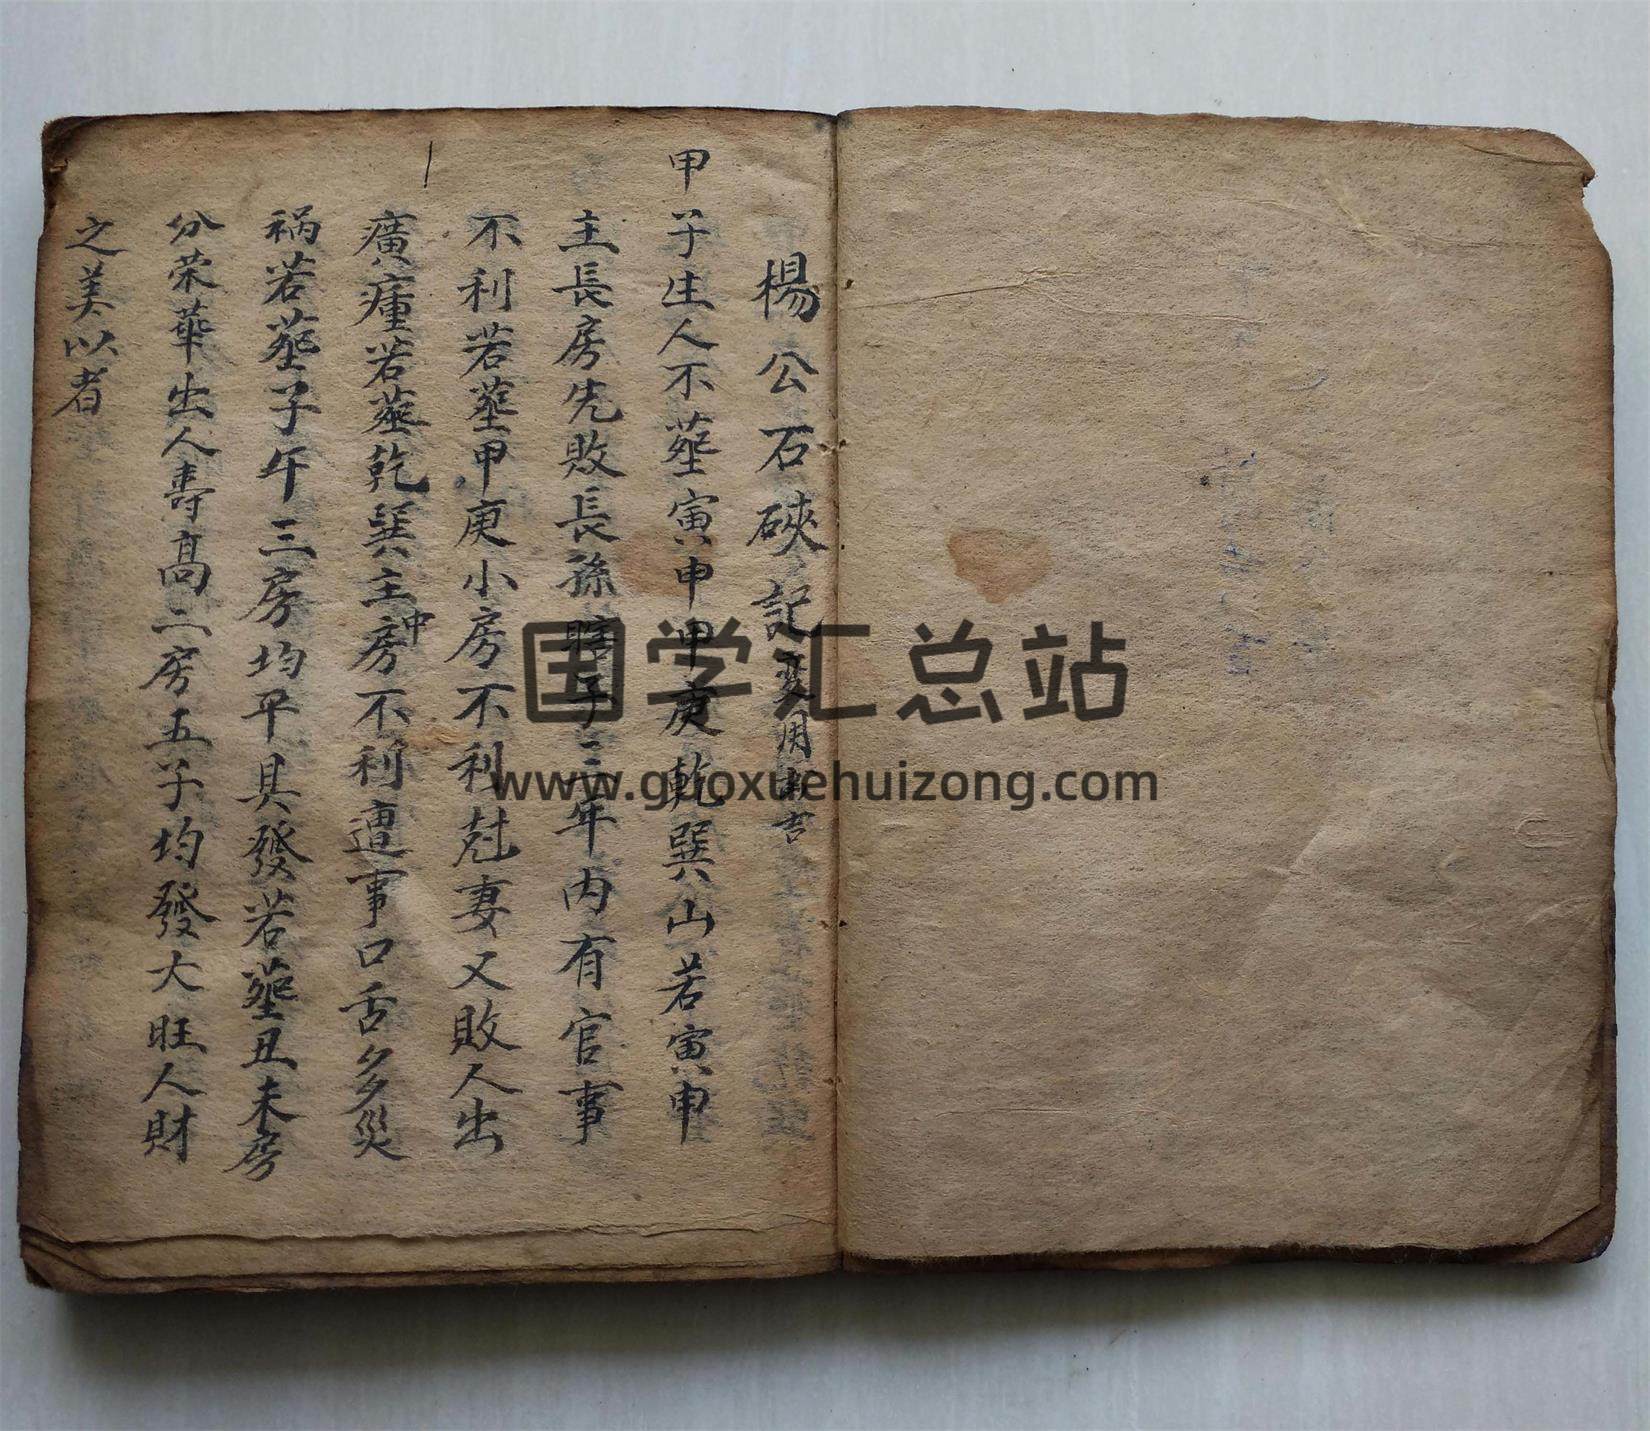 楊公石硤記 変用 吉
甲子生人不葬寅申甲庚乾巽山若寅申
主長房先敗長孫瞎子三年内有官事
不利若葬甲庚小房不利尅妻又敗人出
廣瘇若葬乾巽主中房不利遭事口舌多災
祸若葬子午三房均平具發若葬丑未房
分荣華出人壽高二房五子均發大旺人財
之美以者
国学汇总站
www.guoxuehuizong.com